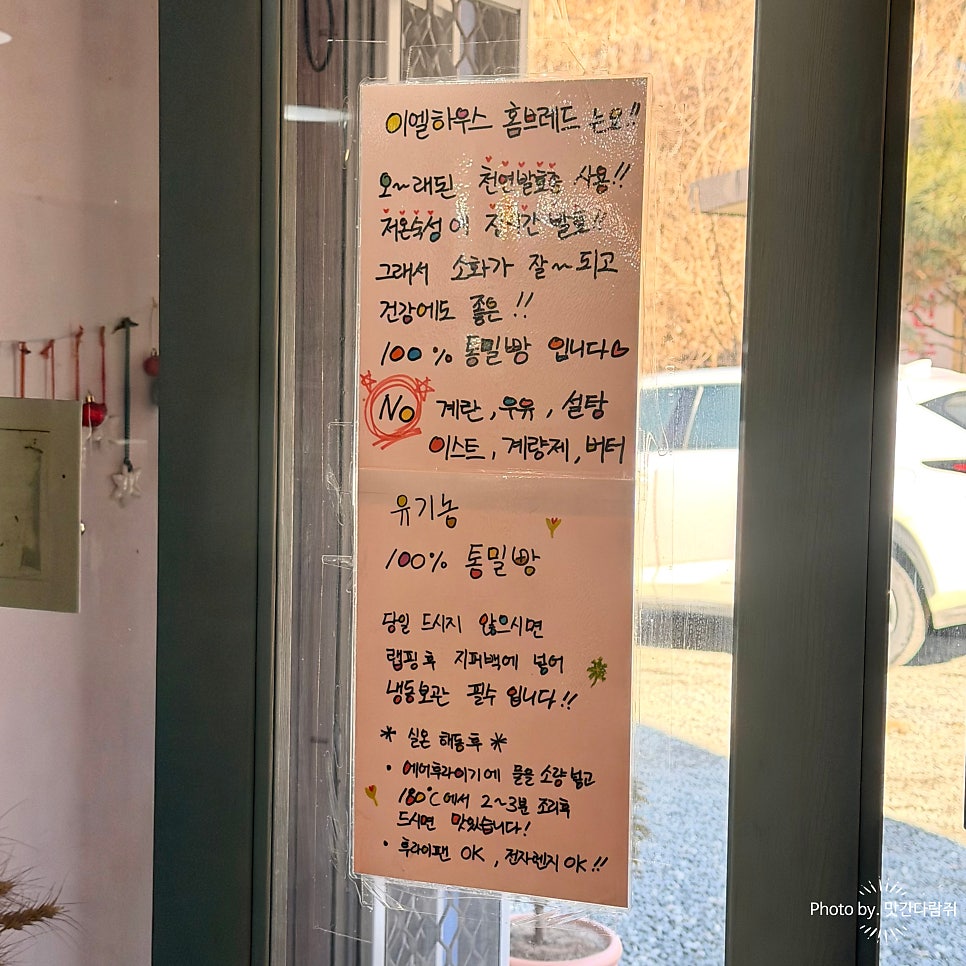 이엘하우스 홈브레드 는요!!
오~래된 천연발효종 사용!!
저온숙성에 장시간 발효!!
그래서 소화가 잘~되고
건강에도 좋은!!
100% 통밀빵 입니다
No 계란, 우유, 설탕
이스트, 계량제, 버터
유기농
100% 통밀빵
당일 드시지 않으시면
랩핑후 지퍼백에 넣어
냉동보관 필수입니다!!
* 실온 해동후 *
• 에어후라이기에 물을 소량 넣고
180°C에서 2~3분 조리후
드시면 맛있습니다!
• 후라이팬 OK, 전자렌지 OK!!
Photo by. 맛간다람쥐